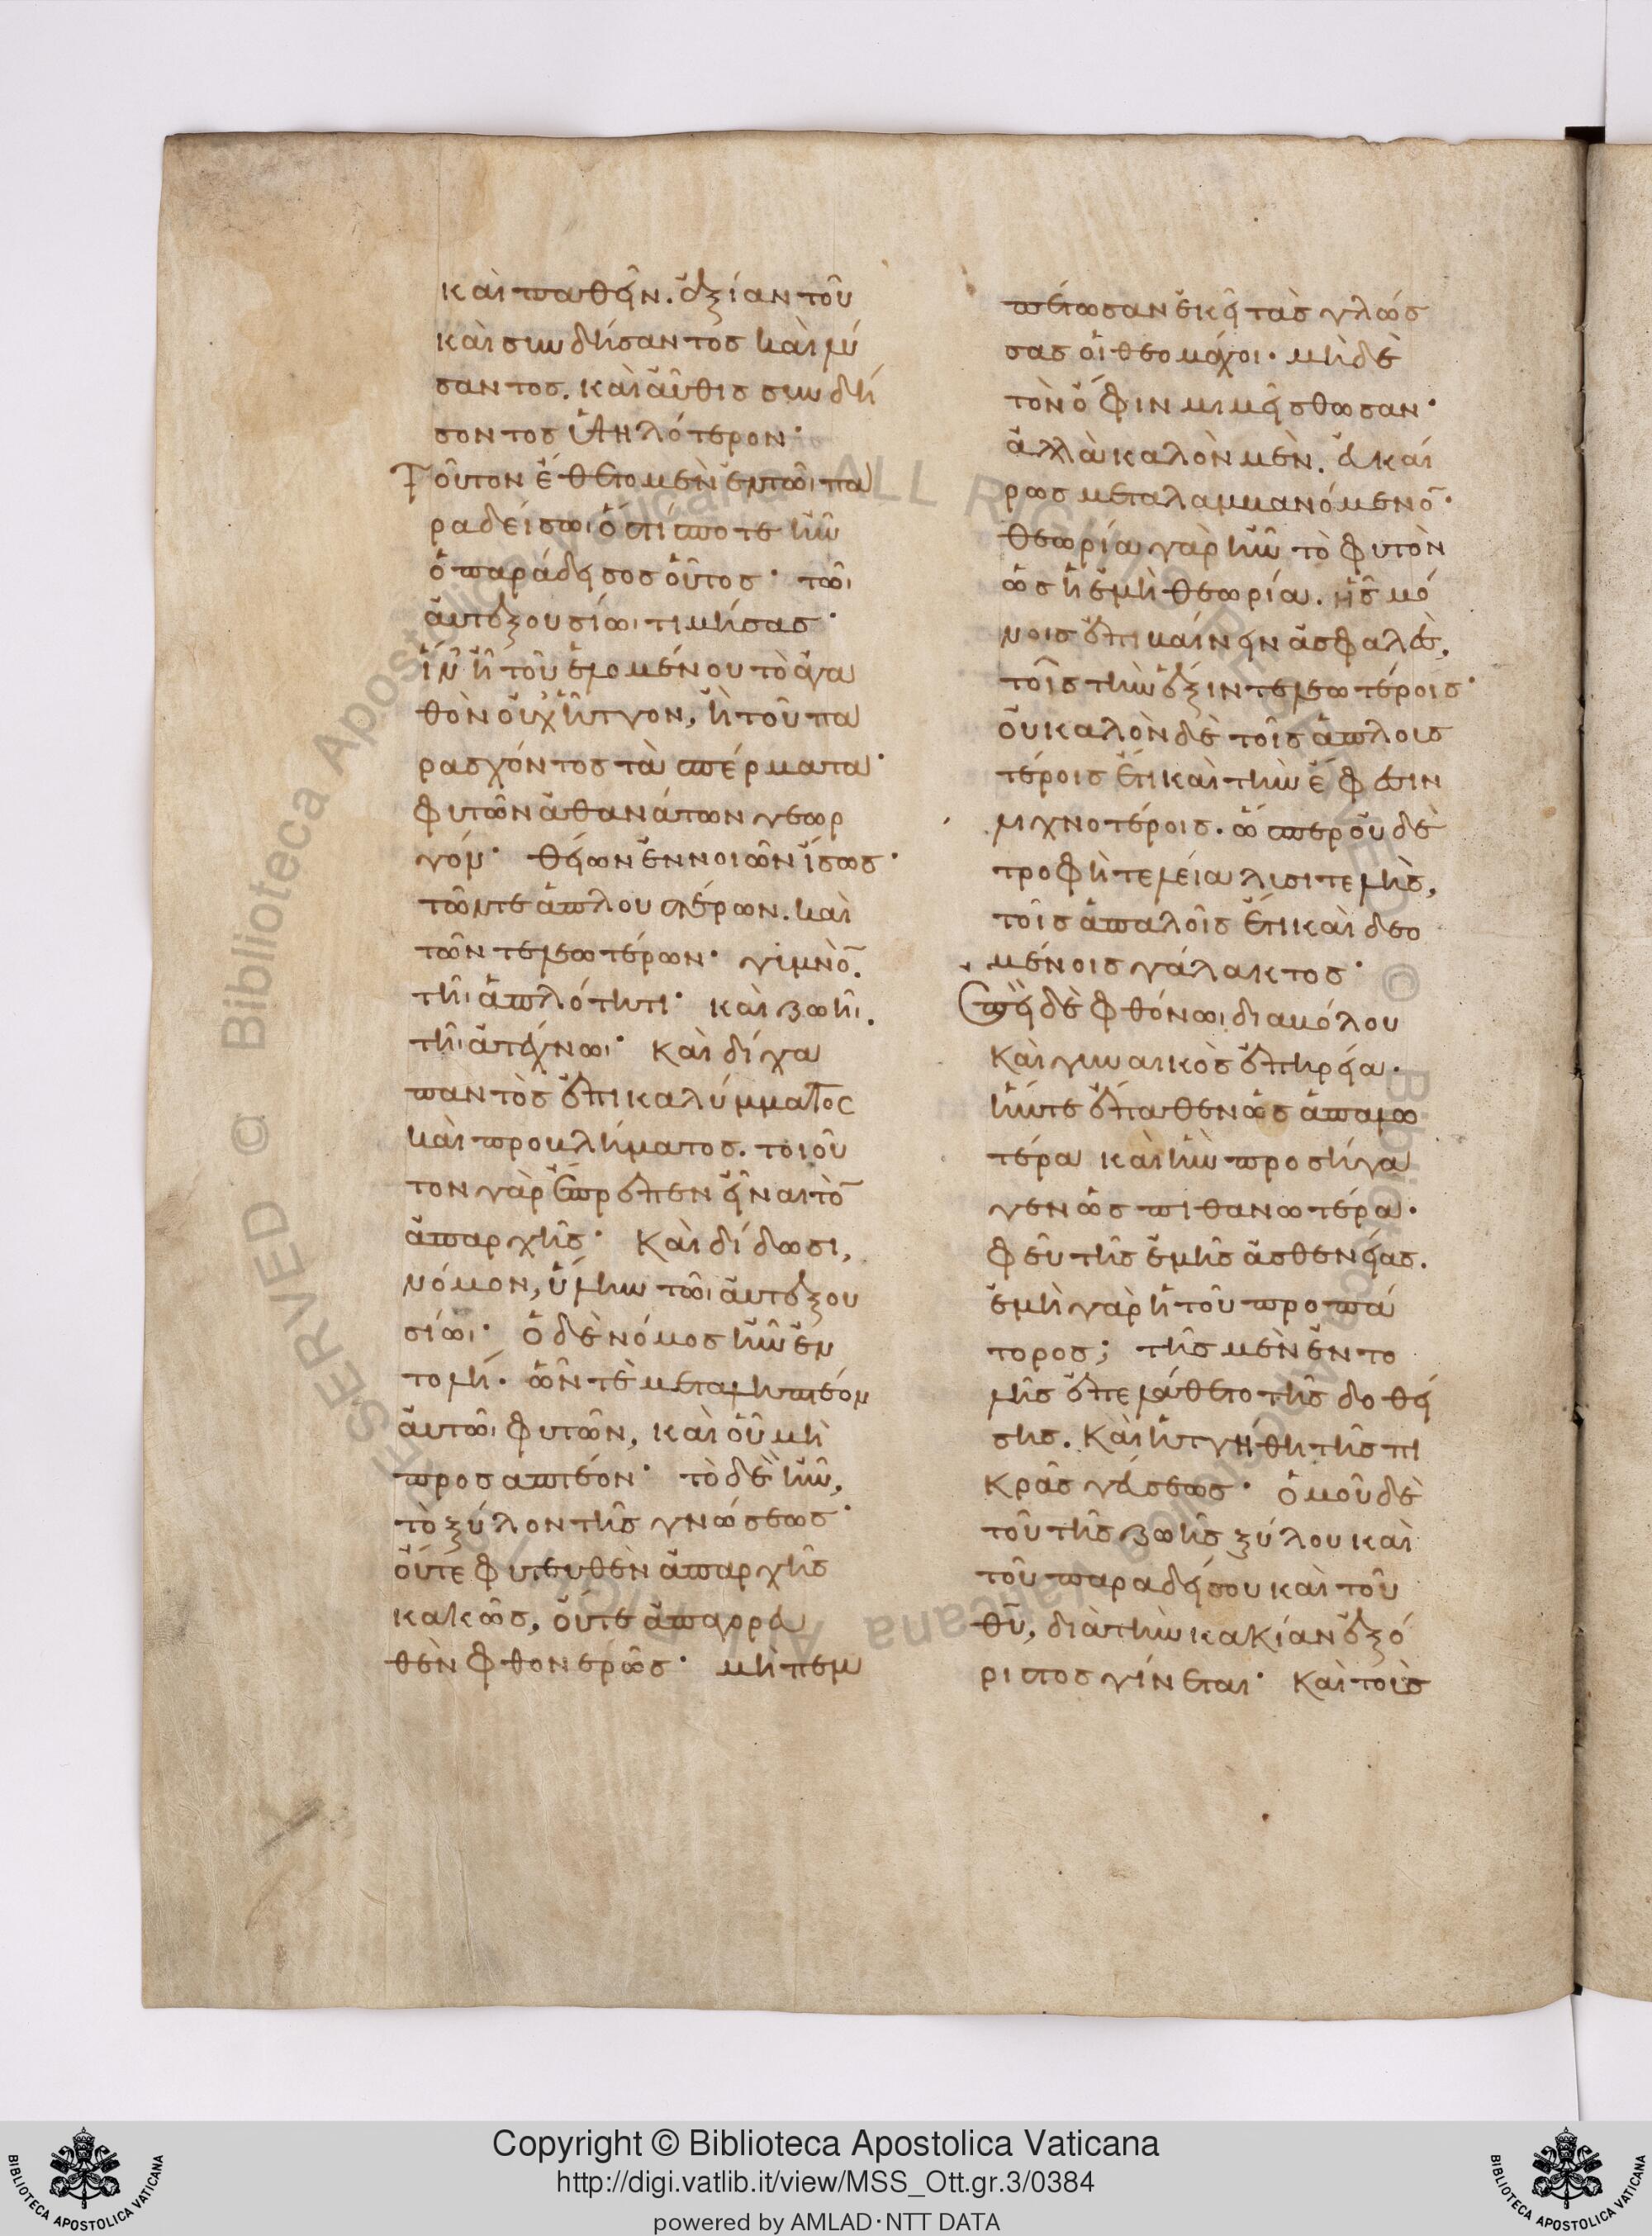 καὶ παθεῖν. ἀξίαν τοῦ
καὶ συνδήσαντος καὶ λύ
σαντος. καὶ αὖθις συνδή
σοντος ὑψηλότερον·
Τοῦτον ἔθετο μὲν ἐν τῶι πα
ραδείσωι ὅστίς ποτε ἦν
ὁ παράδεισος οὗτος· τῶι
αὐτεξουσίωι τιμήσας·
ἵν ἦ τοῦ ἑλομένου τὸ ἀγα
θὸν οὐχ ἧττον, ἢ τοῦ πα
ρασχόντος τὰ σπέρματα·
φυτῶν ἀθανάτων γεωρ
γόν· θείων ἐννοιῶν ἴσως·
τῶν τε ἁπλουστέρων. καὶ
τῶν τελεωτέρων· γυμνὸ̄.
τῆι ἁπλότητι· καὶ ζωῆι.
τῆι ἀτέχνωι· καὶ δίχα
παντὸς ἐπικαλύμματος
καὶ προβλήματος. τοιοῦ
τον γὰρ ἔπρεπεν εἶναι τὸ̄
ἀπαρχῆς· καὶ δίδωσι,
νόμον, ὕλην τῶι αὐτεξου
σίωι· ὁ δὲ νόμος ἦν ἐν
τολή. ὧν τὲ μεταληπτέον
αὐτῶι φυτῶν, καὶ οὗ μὴ
προσαπτέον· τὸ δὲ ἦν,
τὸ ξύλον τῆς γνώσεως·
οὔτε φυτευθὲν ἀπαρχῆς
κακῶς, οὔτε ἀπαγορευ
θὲν φθονερῶς· μὴ πεμ
πέτωσαν ἐκεῖ τὰς γλώσ
σας οἱ θεομάχοι· μὴδὲ
τὸν ὄφιν μιμείσθωσαν·
ἀλλὰ καλὸν μὲν. εὐκαί
ρως μεταλαμβανόμενο̄·
θεωρία γὰρ ἦν τὸ φυτὸν
ὡς ἡ ἐμὴ θεωρία. ἧς μό
νοις ἐπιβαίνειν ἀσφαλὲς,
τοῖς τὴν ἕξιν τελεωτέροις·
οὐ καλὸν δὲ τοῖς ἁπλουσ
τέροις ἔτι καὶ τὴν ἔφεσιν
λιχνοτέροις. ὥσπερ οὐδὲ
τροφὴ τελεία λυσιτελὴς,
τοῖς ἁπαλοῖς ἔτι καὶ δεο
μένοις γάλακτος·
Ἐπεὶ δὲ φθόνωι διαβόλου
καὶ γυναικὸς ἐπηρεία.
ἥντε ἔπαθεν ὡς ἁπαλω
τέρα καὶ ἣν προσήγα
γεν ὡς πιθανωτέρα.
φεῦ τῆς ἐμῆς ἀσθενείας.
ἐμὴ γὰρ ἡ τοῦ προπά
τορος; τῆς μὲν ἐντο
λῆς ἐπελάθετο τῆς δοθεί
σης. καὶ ἡττήθη τῆς πι
κρᾶς γεύσεως· ὁμοῦ δὲ
τοῦ τῆς ζωῆς ξύλου καὶ
τοῦ παραδείσου καὶ τοῦ
θῦ, διὰ τὴν κακίαν ἐξό
ριστος γίνεται· καὶ τοὺς
Copyright © Biblioteca Apostolica Vaticana
http://digi.vatlib.it/view/MSS_Ott.gr.3/0384
powered by AMLAD·NTT DATA